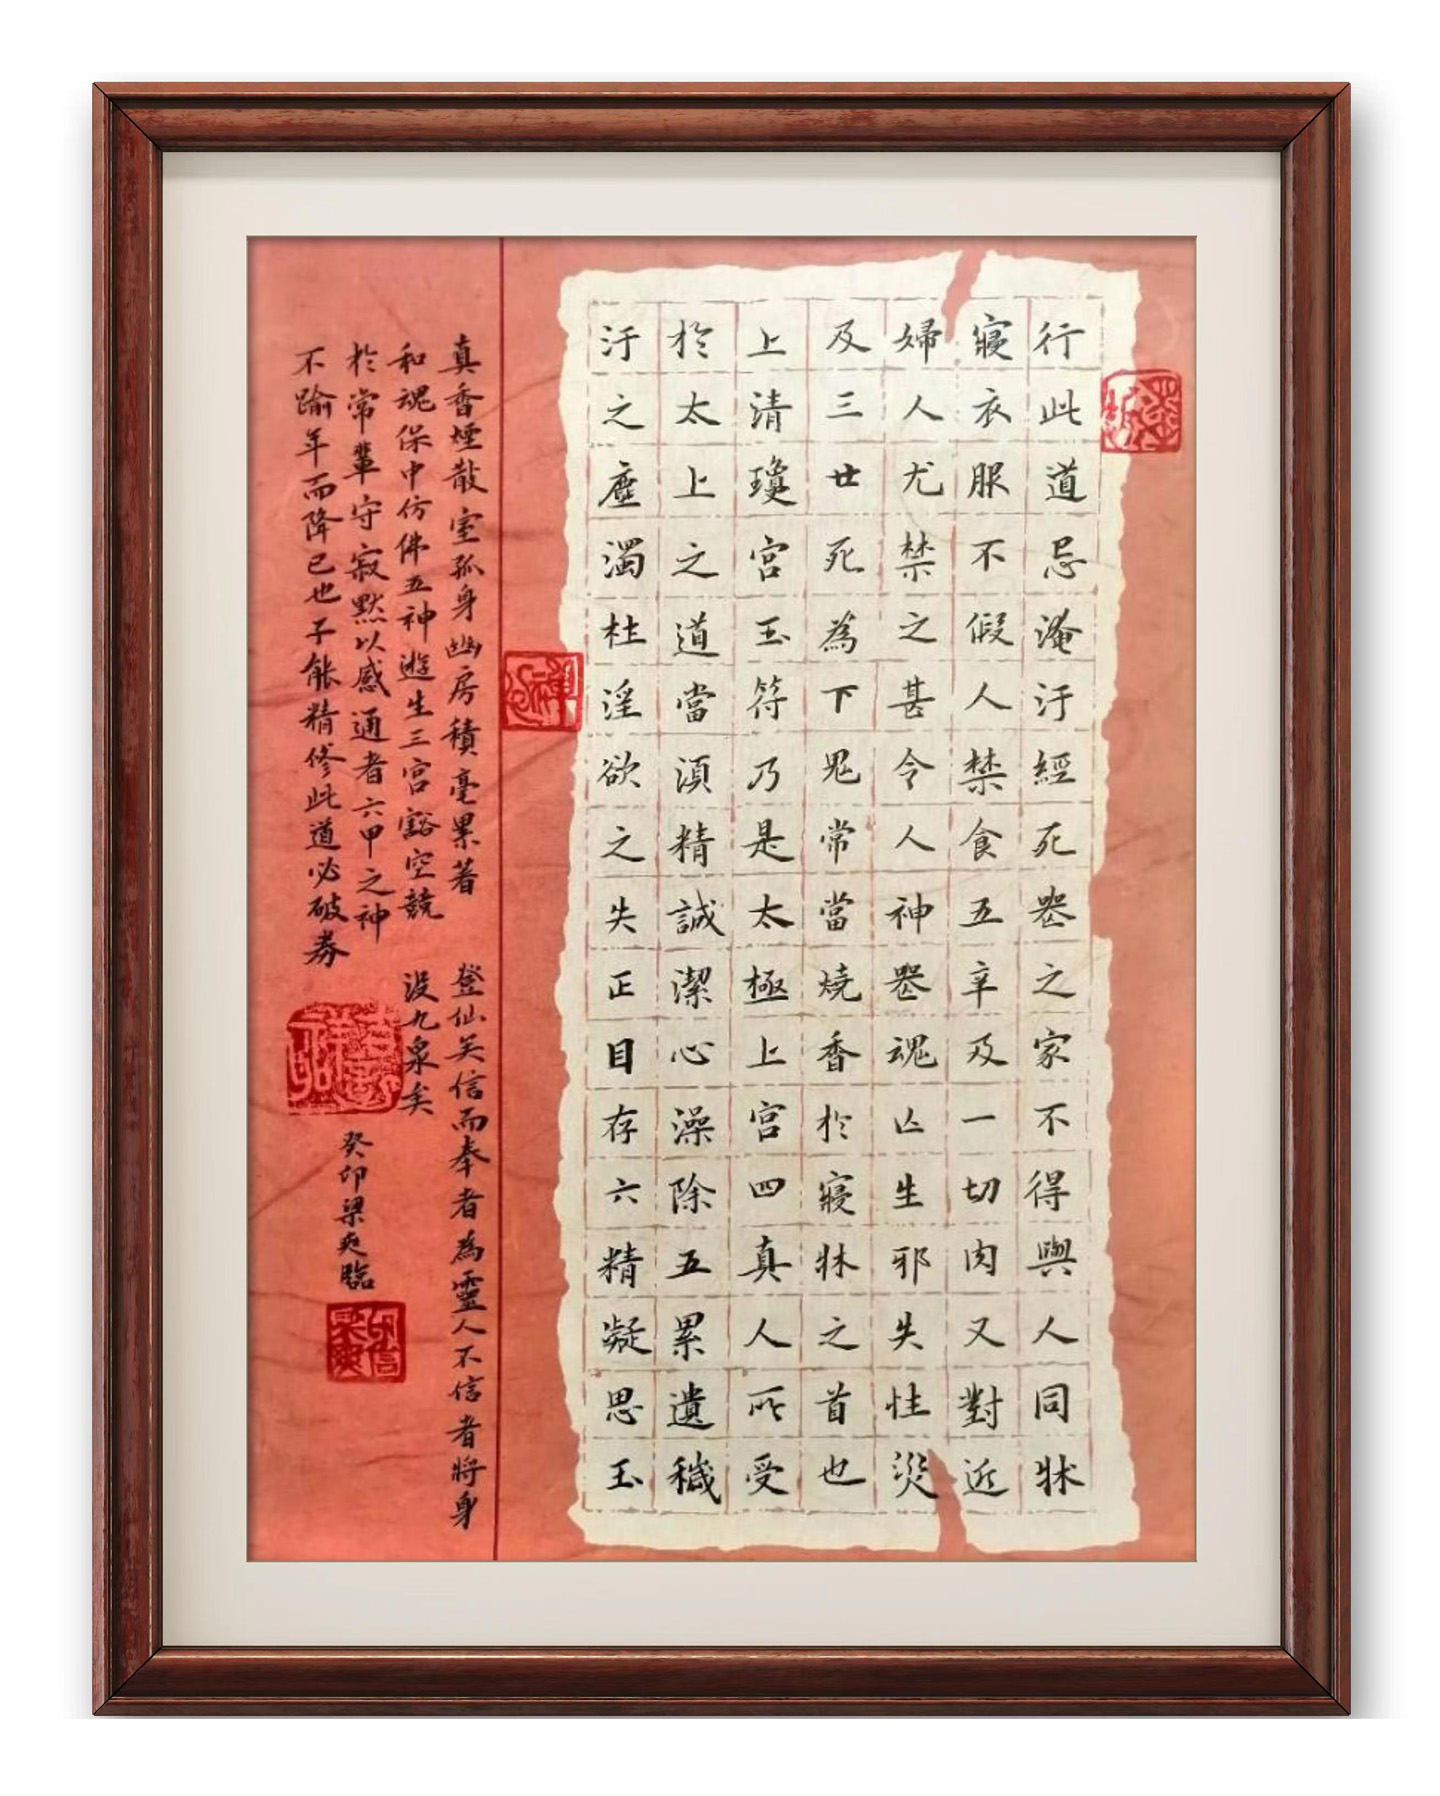 行此道忌淹汙經死喪之家不得與人同牀
寢衣服不假人禁食五辛及一切肉又對近
婦人尤禁之甚令人神喪魂亡生邪失性災
及三世死為下鬼常當燒香於寢牀之首也
上清瓊宮玉符乃是太極上宮四真人所受
於太上之道當須精誠潔心澡除五累遺穢
汙之塵濁杜淫欲之失正目存六精凝思玉
真香煙散室孤身幽房積毫累著
和魂保中仿佛五神遊生三宮豁空競
於常輩守寂默以感通者六甲之神
不踰年而降已也子能精修此道必破券
登仙矣信而奉者為靈人不信者將身
沒九泉矣
癸卯梁爽臨